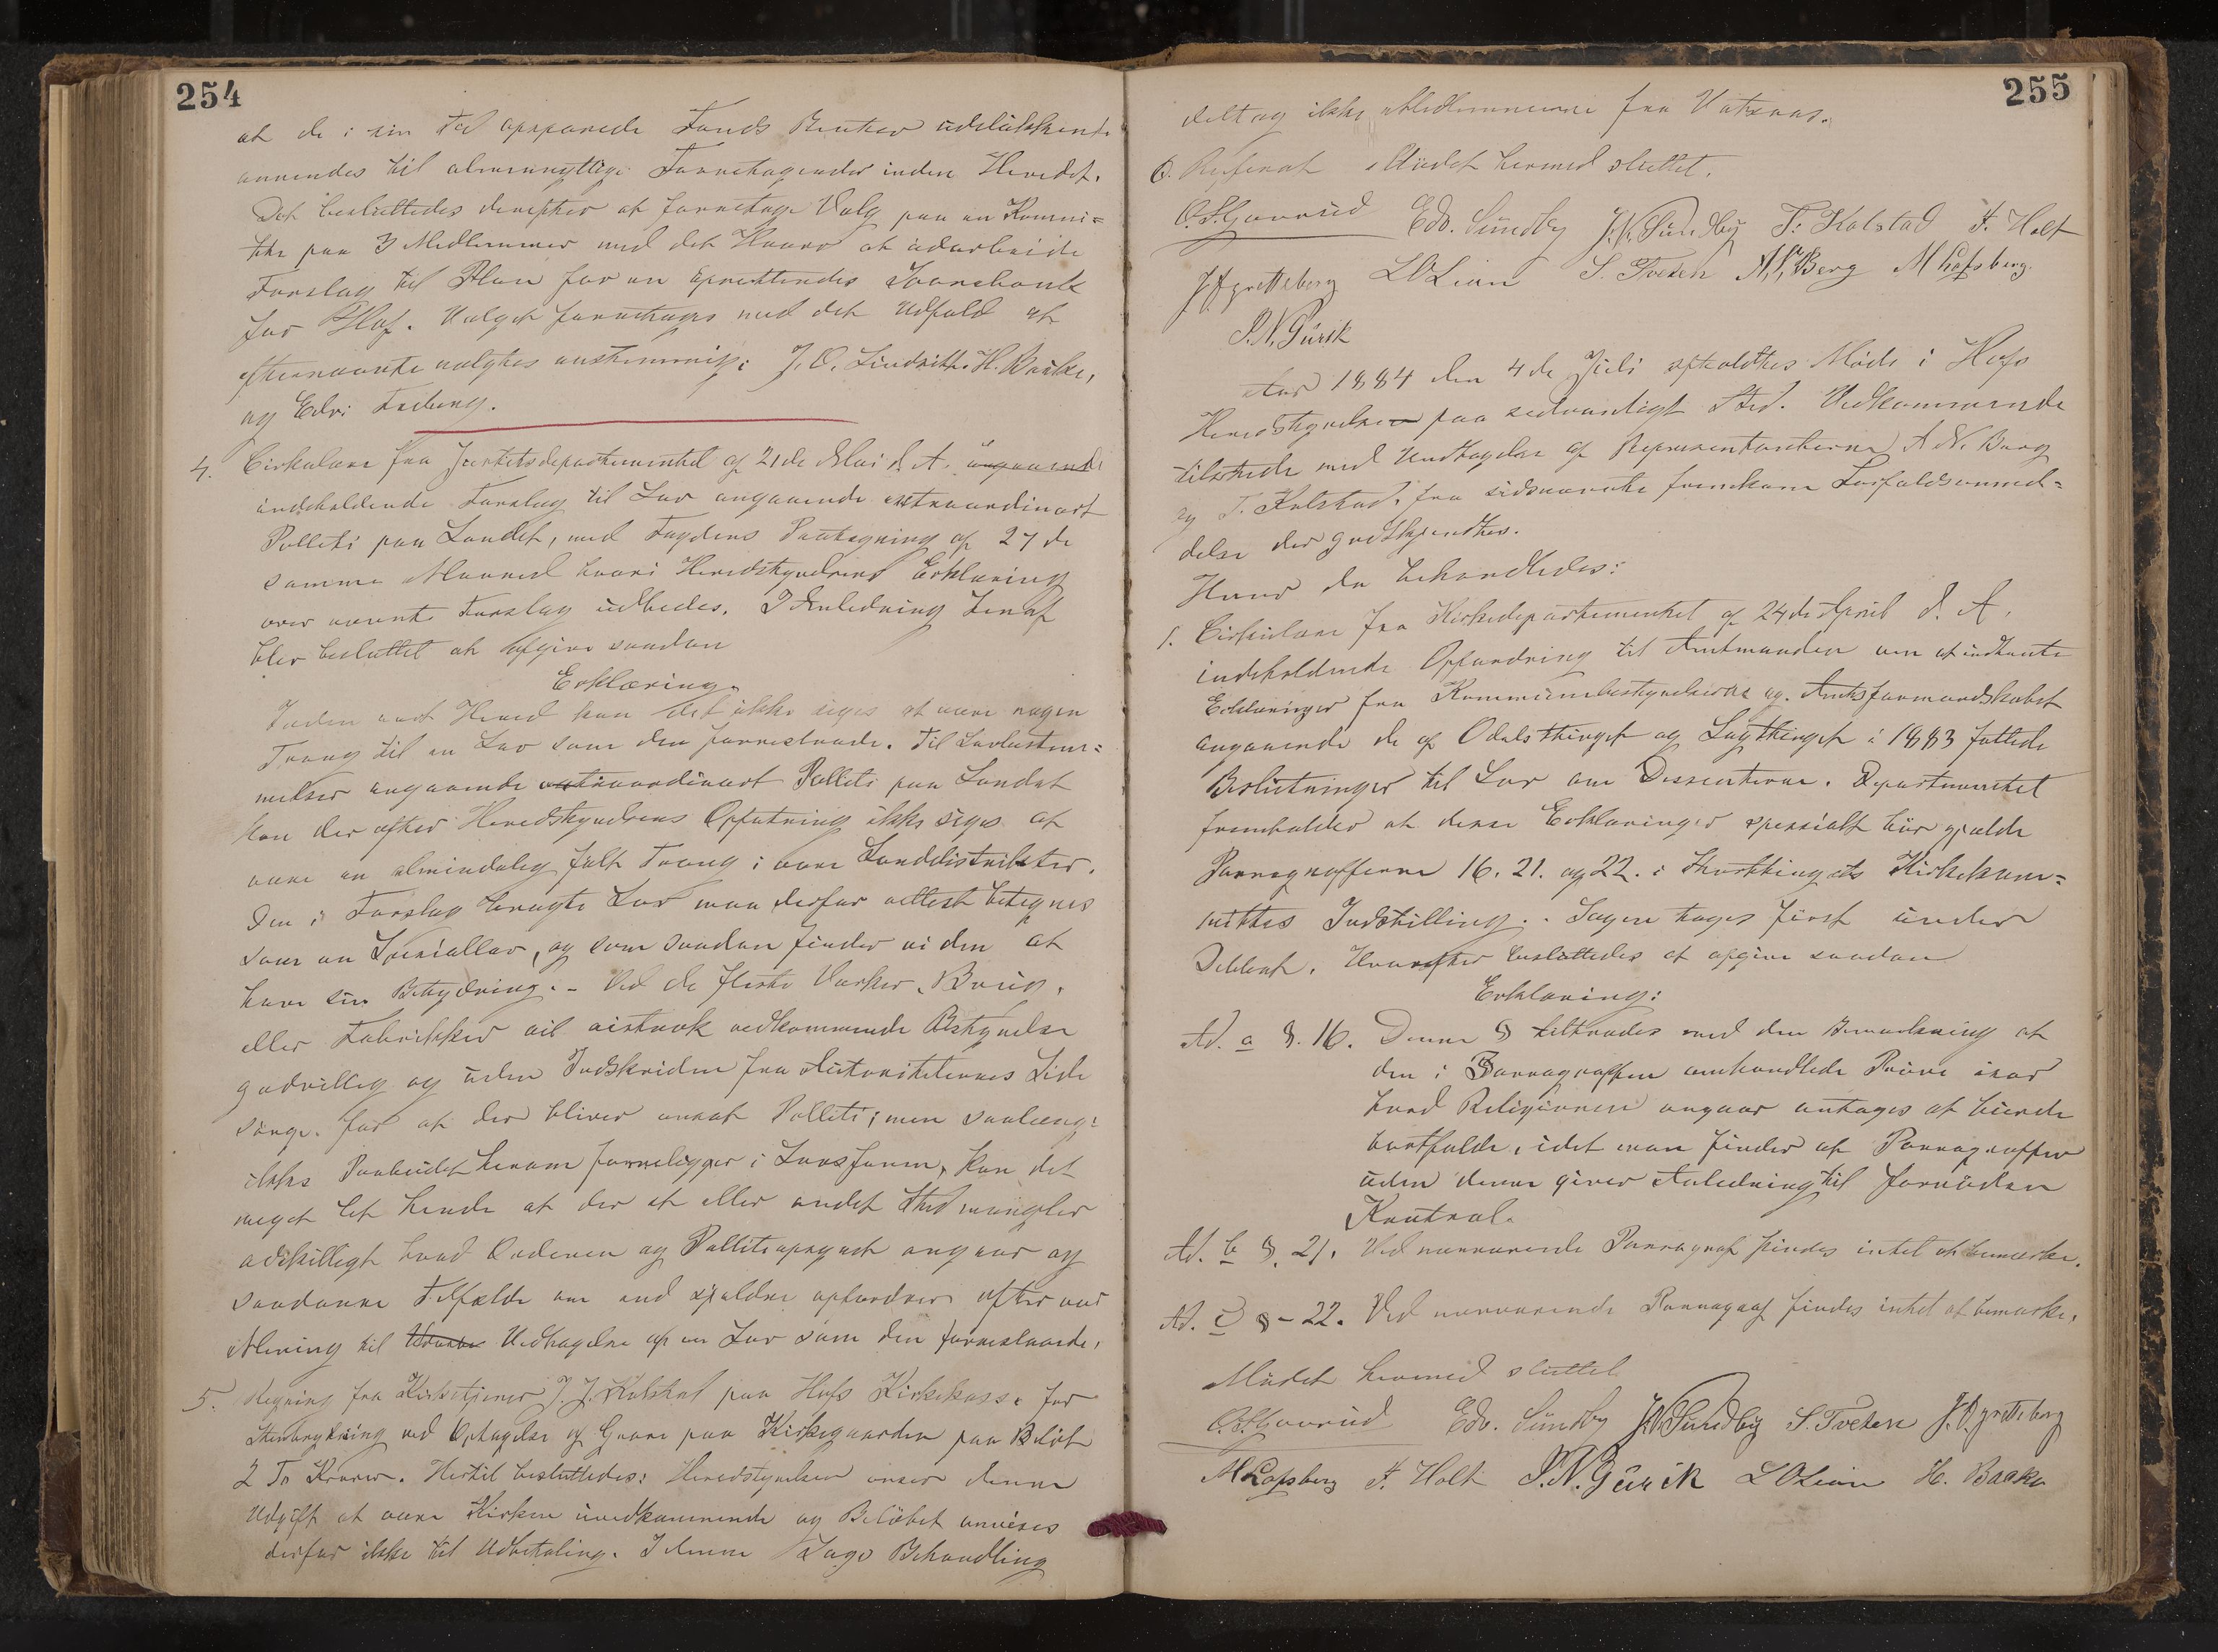 254
at de i sin Tid opsparede Fonds Renter udelukkende
anvendes til almennyttige Foretagender inden Heredet.
Det besluttedes derefter at foretage Valg paa en Kommi=
tte paa 3 Medlemmer med det Hverv at udarbeide
Forslag til Plan for en oprettendes Sparebank
for Hof. Valget foretages med det Udfald at
efternævnte valgtes enstemmig: J. O. H. Baake,
og Edv:
4. Cirkulære fra Justitsdepartementet af 21de Mai d. A. angaaende
indeholdende Forslag til Lov angaaende extraordinært
Politi paa Landet, med Fogdens Paategning af 27de
samme Maaned hvori Heredstyrelsens Erklæring
over nævnte Forslag udbedes. I Anledning heraf
blev besluttet at afgive saadan
Erklæring.
Inden vort Hered kan det ikke siges at være nogen
Trang til en Lov som den foreslaaede. Til Lovbestem=
melser angaaende extraordinært Politi paa Landet
kan der efter Heredstyrelsens Opfatning ikke siges at
være en almindelig følt Trang i vore Landdistrikter.
Den i Forslag bragte Lov maa derfor rettest betegnes
som en Speciallov, og som saadan finder vi den at
have sin Betydning. - Ved de fleste Værker, Brug,
eller Fabrikker vil vistnok vedkommende Bestyrelse
godvillig og uden Indskriden fra Autoriteternes Side
sørge for at der bliver ansat Politi; men saalænge
ikke Paabudet herom foreligger i Lovs Form, kan det
meget let hende at der et eller andet Sted mangler
adskilligt hvad Ordenen og Politiopsynet angaar og
saadanne Tilfælde om end sjeldne opfordrer efter vor
Mening til Vedtagelse af en Lov som den foreslaaede.
5. Regning fra Kirketjener J. J. Kolstad paa Hofs Kirkekasse for
Stenbrydning ved Optagelse af Grave paa Kirkegaarden paa Beløb
2 To Kroner. Hertil besluttedes: Heredstyrelsen anser denne
Udgift at være Kirken uvedkommende og Beløbet anvises
derfor ikke til Udbetaling. I denne Sags Behandling
255
deltog ikke Medlemmerne fra Vataas.
6. Referat Mødet hermed sluttet.
O. S. Gavrud Edv. Sundby J. N. Sundby T. Kolstad F. Holt
J. Agretteberg L O Lian S. Tveten A. N. Berg M Løfsberg
P. N. Purik
Aar 1884 den 4de Juli afholdtes Møde i Hofs
Heredstyrelse paa sedvanligt Sted. Vedkommende
tilstede med Undtagelse af Representanterne A. N. Berg
og T. Kolstad, fra sidsnævnte fremkom Forfaldsanmel=
delse der godkjendtes.
Hvor da behandledes:
1. Cirkulære fra Kirkedepartementet af 24de April d. A.
indeholdende Opfordring til Amtmanden om at indhente
Erklæringer fra Kommunebestyrelserne og Amtsformandskabet
angaaende de af Odelsthinget og Lagthinget i 1883 fattede
Beslutninger til Lov om Dissenterne. Departementet
fremholder at denne Erklæringer specielt bør gjælde
Paragrafferne 16. 21. og 22. i Storthingets Kirkekom=
mittes Indstilling. - Sagen toges først under
Debbat, Hvorefter besluttedes at afgive saadan
Erklæring:
Ad. a §. 16. Denne § tiltrædes med den Bemærkning at
den i Paragraffen omhandlede Prøve især
hvad Religionen angaar antages at burde
bortfalde, idet man finder at Paragraffen
uden denne giver Anledning til fornøden
Kontrol.
Ad. b §. 21. Ved nærværende Paragraf findes intet at bemærke.
Ad. c) § - 22. Ved nærværende Paragraf findes intet at bemærke.
Mødet hermed sluttet
O. S. Gavrud Edv. Sundby J. N. Sundby S. Tveten J. Agretteberg
M Løfsberg F. Holt P. N. Purik L O Lian H. Baake